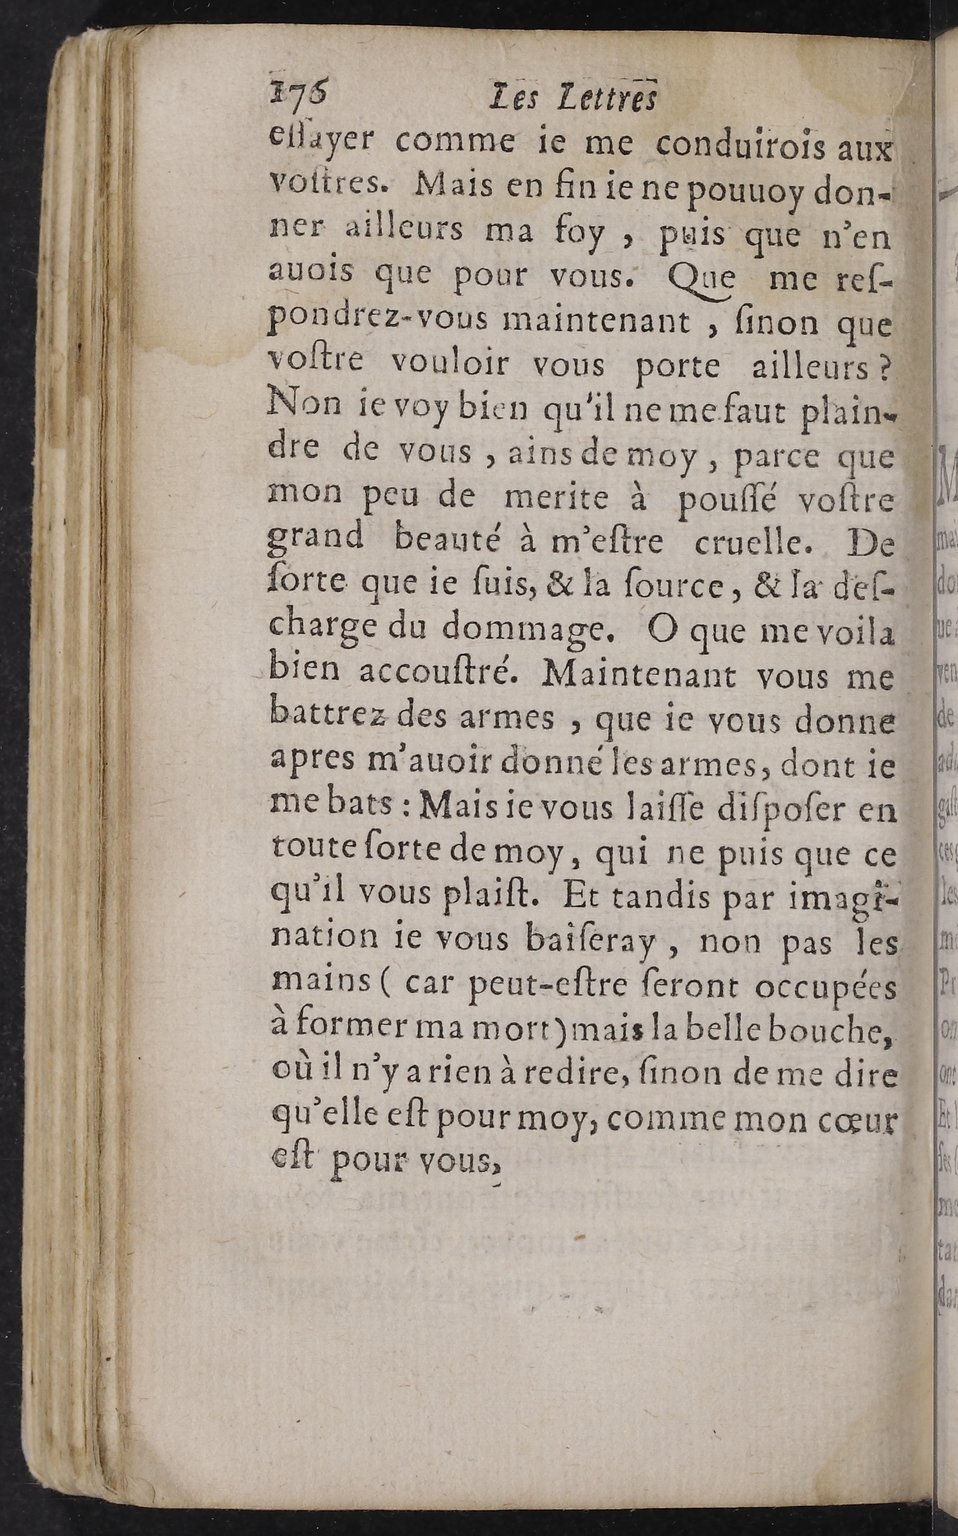 176 Les Lettres
eſſayer comme ie me conduirois aux
voſtres. Mais en fin ie ne pouuoy don-
ner ailleurs ma foy , puis que n'en
auois que pour vous. Que me reſ-
pondrez-vous maintenant , ſinon que
voſtre vouloir vous porte ailleurs ?
Non ie voy bien qu'il ne me faut plain-
dre de vous , ains de moy , parce que
mon peu de merite à pouſſé voſtre
grand beauté à m'eſtre cruelle. De
ſorte que ie ſuis, & la ſource, & la deſ-
charge du dommage. O que me voila
bien accouſtré. Maintenant vous me
battrez des armes , que ie vous donne
apres m'auoir donné les armes, dont ie
me bats : Mais ie vous laiſſe diſpoſer en
toute ſorte de moy, qui ne puis que ce
qu'il vous plaiſt. Et tandis par imagi-
nation ie vous baiſeray , non pas les
mains ( car peut-eſtre ſeront occupées
à former ma mort) mais la belle bouche,
où il n'y a rien à redire, ſinon de me dire
qu'elle eſt pour moy, comme mon cœur
eſt pour vous,